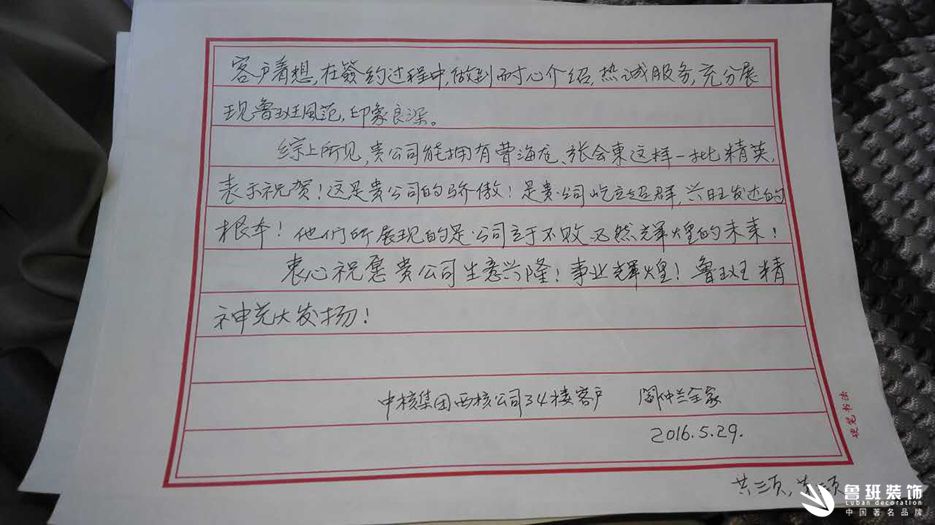 客户着想,在签约过程中,做到耐心介绍,热诚服务,充分展
现鲁班风范,印象良深。
综上所见,贵公司能拥有曹海龙、张会东这样一批精英,
表示祝贺!这是贵公司的骄傲!是贵公司屹立超群,兴旺发达的
根本!他们所展现的是公司立于不败必然辉煌的未来!
衷心祝愿贵公司生意兴隆!事业辉煌!鲁班精
神光大发扬!
中核集团西核公司34楼客户 阎仲兰全家
2016.5.29.
硬笔书法
共三页,
鲁班装饰
Luban decoration
中国著名品牌